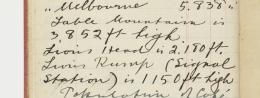 " Melbourne 5,838 "
Table Mountain is
3,852 ft high
Lions Head is 2,180 ft.
Lions Rump (Signal
Station) is 1150 ft high
Population of Cape